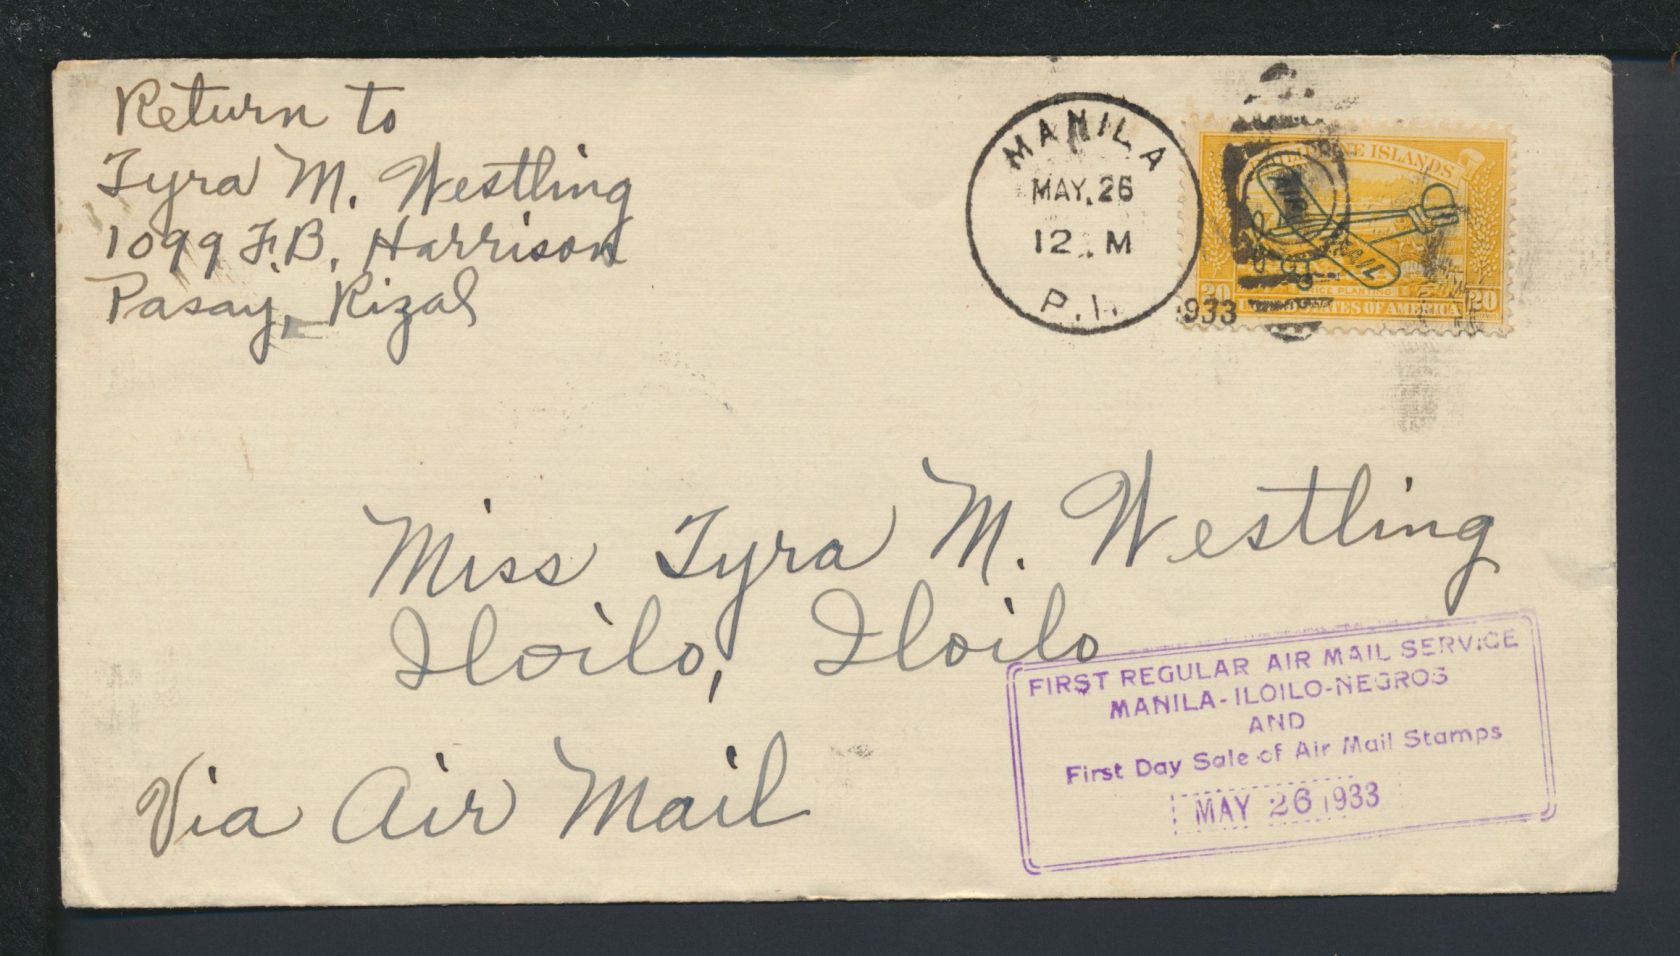 Return to
Tyra M. Westling
1099 F.B. Harrison
Pasay, Rizal
MANILA
MAY. 26
12 M
P.I.
1933
PHILIPPINE ISLANDS
AIR MAIL
RICE PLANTING
20 20
UNITED STATES OF AMERICA
Miss Tyra M. Westling
Iloilo, Iloilo
Via Air Mail
FIRST REGULAR AIR MAIL SERVICE
MANILA-ILOILO-NEGROS
AND
First Day Sale of Air Mail Stamps
MAY 26 1933